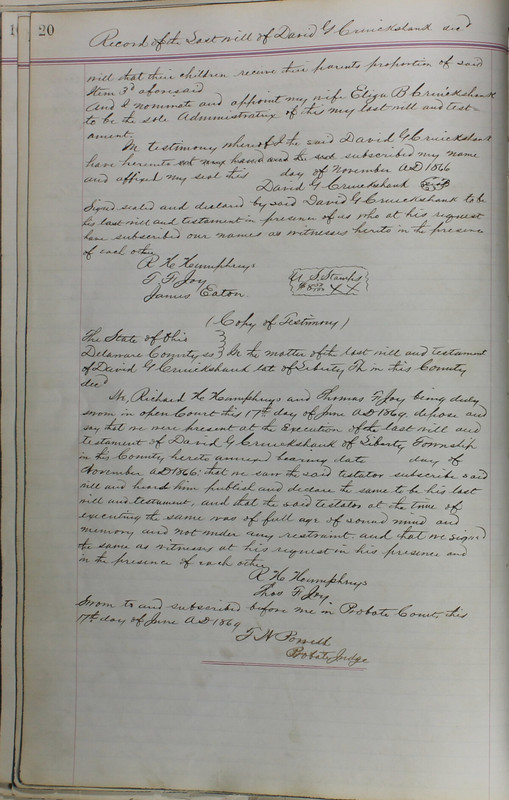 20
Record of the Last will of David G Cruickshank decd
will that their children receive their parents proportion of said
Item 3d aforesaid
And I nominate and appoint my wife Eliza B Cruickshank
to be the sole Administratrix of this my last will and test=
ament.
In testimony whereof I the said David G Cruickshank
have hereunto set my hand and subscribed my name
and affixed my seal this day of November AD 1866
David G Cruickshank Seal
Signed sealed and declared by said David G Cruickshank to be
his last will and testament in presence of us who at his request
have subscribed our names as witnesses hereto in the presence
of each other
R H Humphreys
T F Joy
James Eaton.
U S. Stamps
XX
(Copy of Testimony)
The State of Ohio
Delaware County ss } In the matter of the last will and testament
of David G Cruickshank late of Liberty Tp in this County
decd
We, Richard H Humphreys and Thomas F Joy being duly
sworn in open Court this 17th day of June AD 1869, depose and
say that we were present at the Execution of the last will and
testament of David G Cruickshank of Liberty Township
in this County hereto annexed bearing date day of
November AD 1866; that we saw the said testator subscribe said
will and heard him publish and declare the same to be his last
will and testament, and that the said testator at the time of
executing the same was of full age of sound mind and
memory and not under any restraint and that we signed
the same as witnesses at his request in his presence and
in the presence of each other
R H Humphreys
Thos F Joy
Sworn to and subscribed before me in Probate Court, this
17th day of June AD 1869
T W Powell
Probate Judge